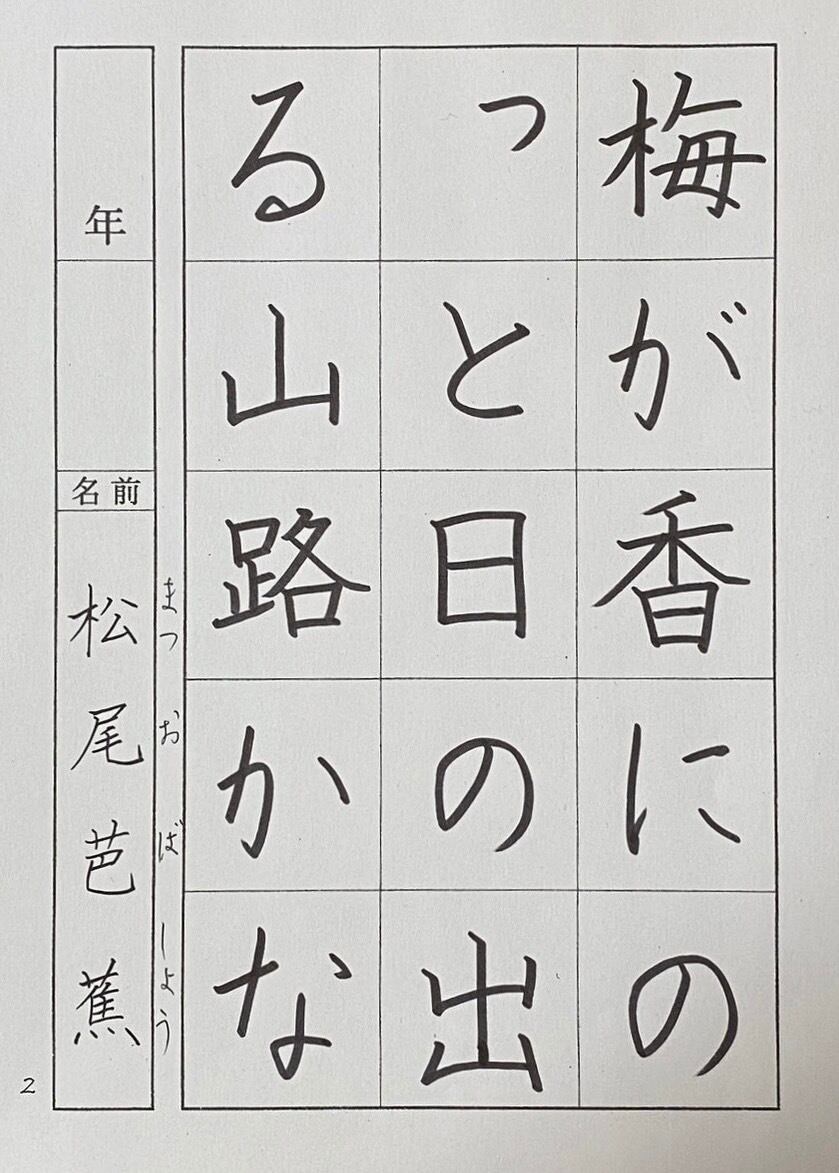 梅が香にの
っと日の出
る山路かな
まつおばしょう
年
名前
松尾芭蕉
2